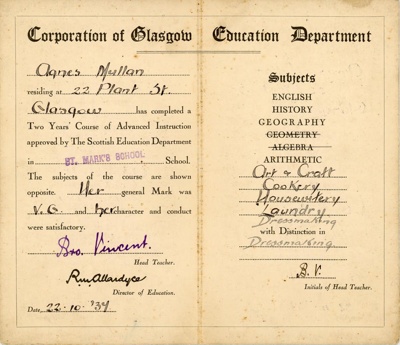 Corporation of Glasgow Education Department
Agnes Mullan
residing at 22 Plant St.
Glasgow has completed a
Two Years' Course of Advanced Instruction
approved by The Scottish Education Department
in ST. MARK'S SCHOOL School.
The subjects of the course are shown
opposite. Her general Mark was
V.G. and her character and conduct
were satisfactory.
Bro. Vincent.
Head Teacher.
RM Allardyce
Director of Education.
Date, 22-10-'37
Subjects
ENGLISH
HISTORY
GEOGRAPHY
GEOMETRY
ALGEBRA
ARITHMETIC
Art & Craft
Cookery
Housewifery
Laundry
Dressmaking
with Distinction in
Dressmaking
B.V.
Initials of Head Teacher.